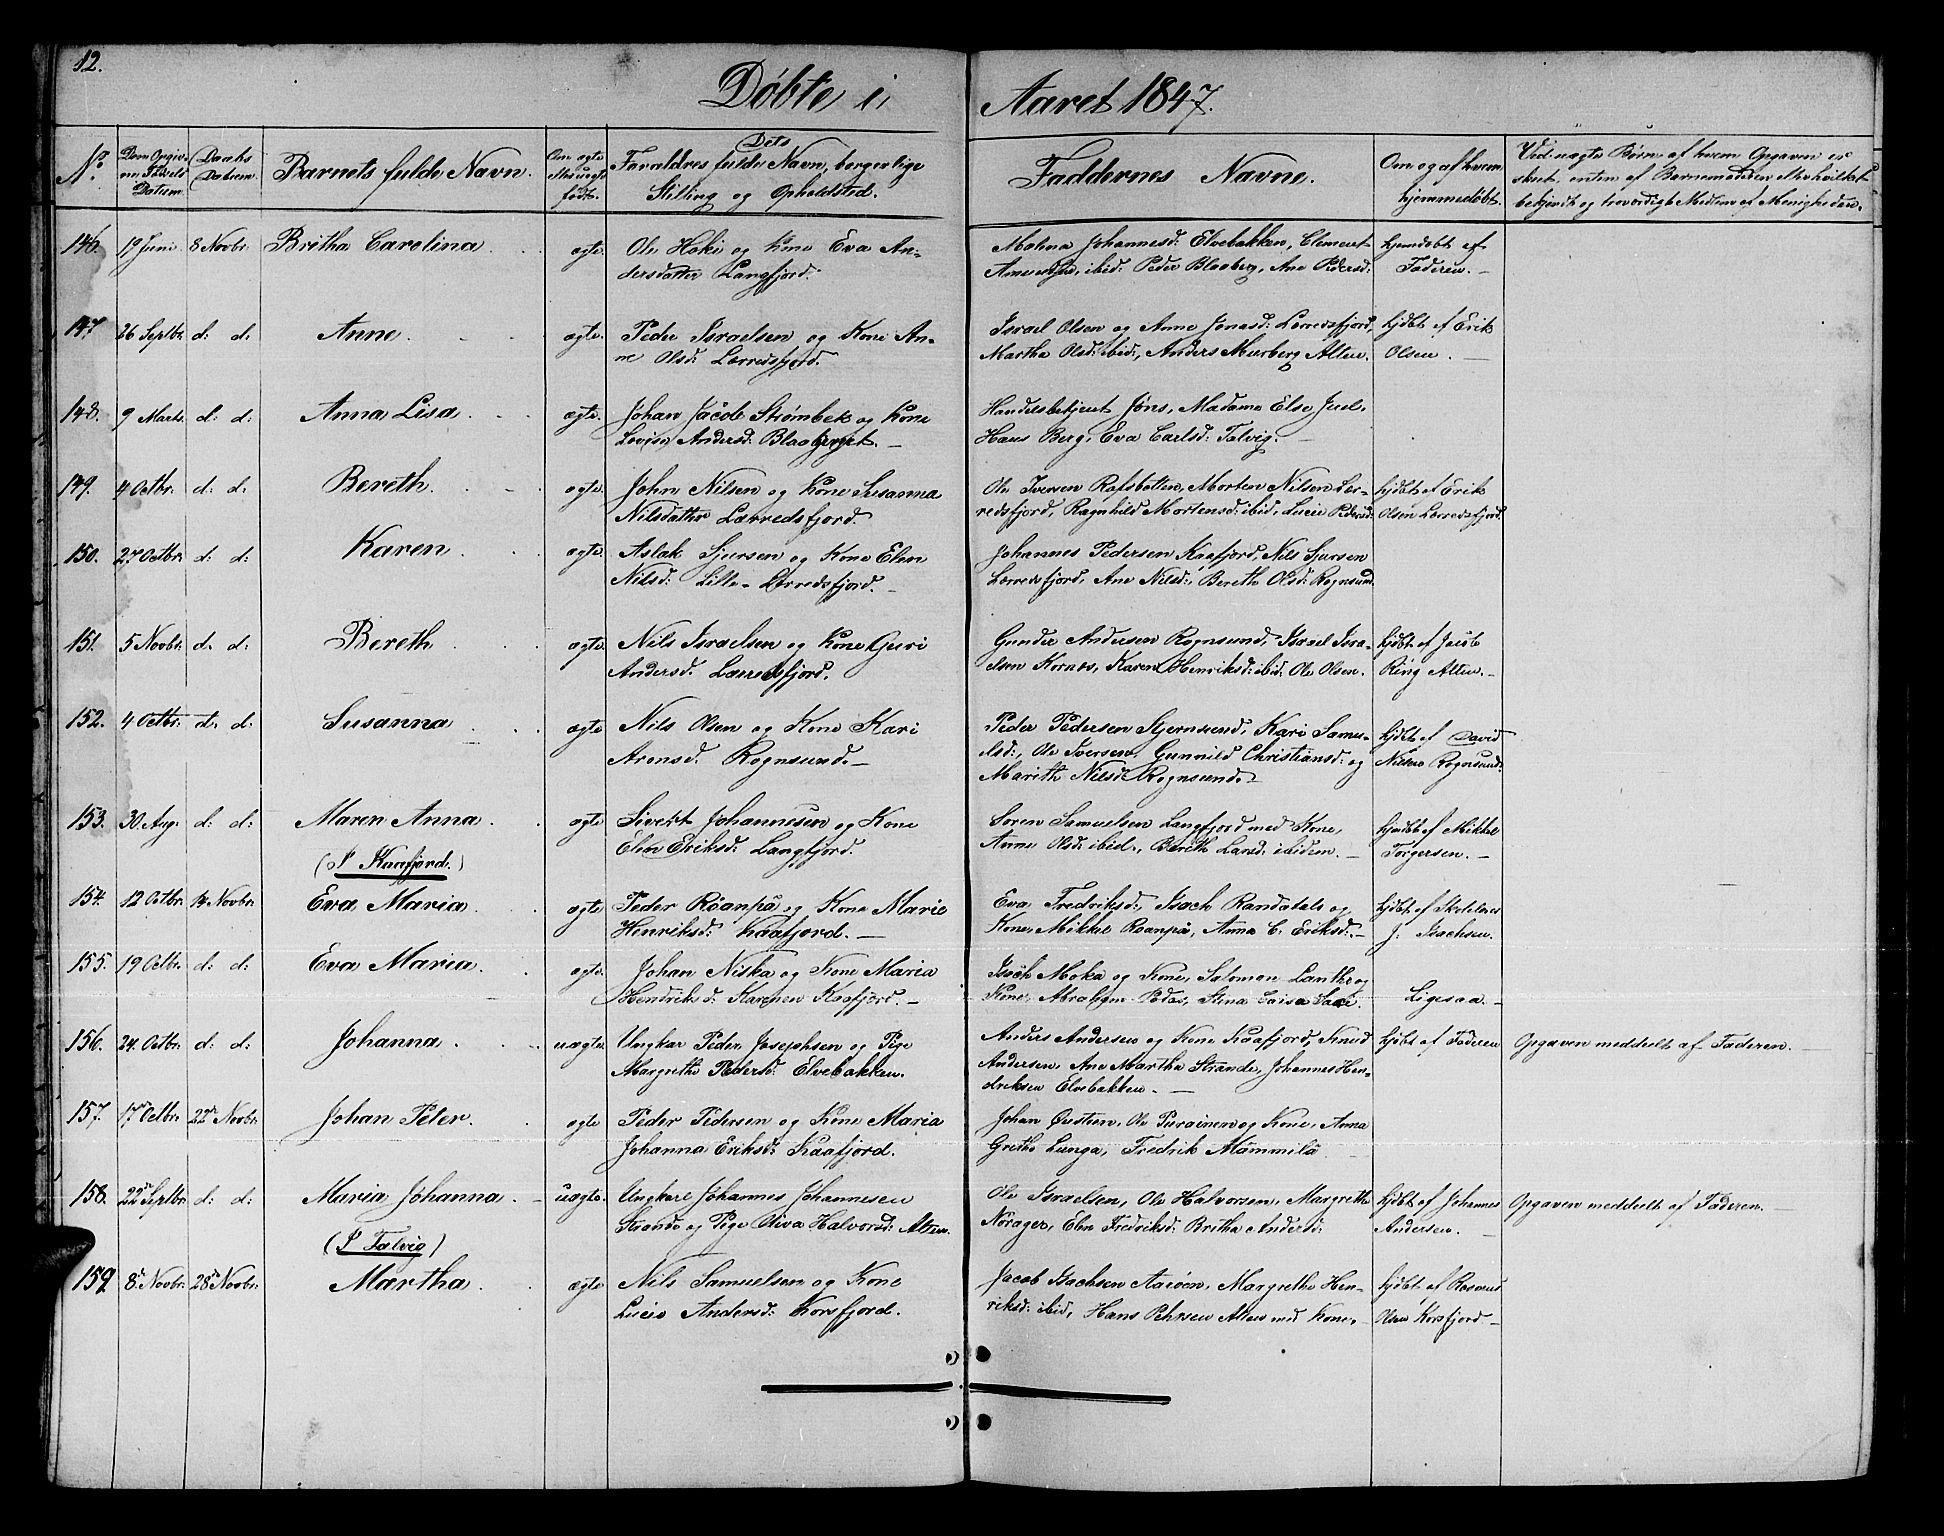 12.
Døbte i Aaret 1847.
No.
Den Opgivne Fødsels Datum
Daabs Datum.
Barnets fulde Navn.
Om ægte eller uægte født.
Dets Forældres fulde Navn, borgerlige
Stilling og Opholdsted.
Faddernes Navne.
Om og af hvem
hjemmedøbt.
Ved uægte Børn, af hvem Opgaven er
skeet, enten af Barnemoderen eller hvilket
bekjendt og troværdigt Medlem af Menigheden.
146. 19 Juni 8 Novbr. Britha Carolina ægte. Ole Hoki og Kone Eva An-
dersdatter Langfjord.
Malena Johannesd: Elvebakken, Clement
ibid: Peder Blaaberg, Ane Pedersd:
hjemdøbt af
Faderen.
147 26 Septbr. d: d: Anne ægte. Peder Israelsen og Kone An-
ne Olsd: Lærredsfjord.
Israel Olsen og Anne Jonasd: Lerredsfjord,
Martha Olsd: ibid:, Anders Murberg Alten.
hjdbt af Erik
Olsen.
148. 9 Marts. d: d: Anna Lisa ægte. Johan Jacob Strømbek og Kone
Lovisa Andersd: Blaaberget.
Handelsbetjent Jöns, Madame Else Juel.
Hans Berg, Eva Carlsd: Talvig.
149. 4 Octbr. d: d: Bereth. ægte. John Nilsen og Kone Susanna
Nilsdatter Lærredsfjord.
Ole Iversen Rafsbotten, Morten Nilsen Ler-
redsfjord, Ragnhild Mortensd: ibid, Lucie Pedersd:
hjdbt af Erik
Olsen Lerredsfjord
150. 27 Octbr. d: d: Karen ægte. Aslak Sjursen og Kone Elen
Nilsd: Lille-Lerredsfjord.
Johannes Pedersen Kaafjord, Nils Sjursen
Lerredsfjord, Ane Nilsd:, Bereth Olsd: Rognsund.
151. 5 Novbr. d. d: Bereth ægte. Nils Israelsen og Kone Guri
Andersd: Lærredsfjord.
Gunder Andersen Rognsund, Israel Isra-
elsen Kornæs, Karen Henriksd: ibid: Ole Olsen.
hjdbt af Jacob
Ring Alten.
152. 4 Octbr. d. d: Susanna ægte Nils Olsen og Kone Kari
Aronsd: Rognsund.
Peder Pedersen Stjernsund, Kari Samu-
elsd:, Ole Iversen Gunnild Christiansd: og
Marith Nilsd: Rognsund.
hjdbt af David
Nilsen Rognsund.
153. 30. Aug. d: d: Maren Anna. ægte Sivert Johannesen og Kone
Elen Eriksd: Langfjord.
Søren Samuelsen Langfjord med Kone,
Anne Olsd: ibid., Berith Larsd: ibidem.
hjmdbt af Mikkel
Torgersen.
(I Kaafjord.)
154. 12 Octbr. 14 Novbr. Eva Maria ægte Peder Röanpä og Kone Marie
Henriksd: Kaafjord.
Eva Fredriksd:, Isach Randatalo og
Kone, Mikkel Roanpä, Anna C. Eriksd:
hjdbt af Skolelærer
J. Isachsen.
155. 19 Octbr. d: d: Eva Maria. ægte. Johan Niska og Kone Maria
Hendriksd: Karonen Kaafjord.
Isach Moka og Kone, Salomon Lantto og
Kone, Abraham Stina Caisa
Ligesaa
156. 24. Octbr. d: d: Johanna uægte. Ungkar Peder Josephsen og Pige
Margrethe Pedersd: Elvebakken.
Anders Andersen og Kone Kaafjord, Knud
Andersen, Ane Martha Strande, Johannes Hen-
driksen Elvebakken.
hjdbt af Faderen
Opgaven meddeelt af Faderen.
157. 17de Octbr. 22de Novbr. Johan Peter. ægte Peder Pedersen og Kone Maria
Johanna Eriksd: Kaafjord.
Johan Ole Purainen og Kone, Anna
Grethe Lunga, Fredrik Mämmilä
158. 22de Septbr. d: d: Maria Johanna uægte. Ungkarl Johannes Johannesen
Strande og Pige Oliva Halvorsd: Alten.
Ole Israelsen, Ole Halvorsen, Margrethe
Norager, Elen Fredriksd: Britha Andersd:
hjdbt af Johannes
Andersen.
Opgaven meddeelt af Faderen.
(I Talvig)
159 8de Novbr. 28de Novbr. Martha ægte Nils Samuelsen og Kone
Lucie Andersd: Korsfjord.
Jacob Isachsen Aarøen, Margrethe Hen-
riksd: ibid, Hans Pehrsen Alten med Kone.
hjdbt af Rasmus
Olsen Korsfjord